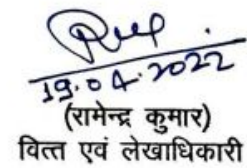 19.04.2022
(रामेन्द्र कुमार)
वित्त एवं लेखाधिकारी